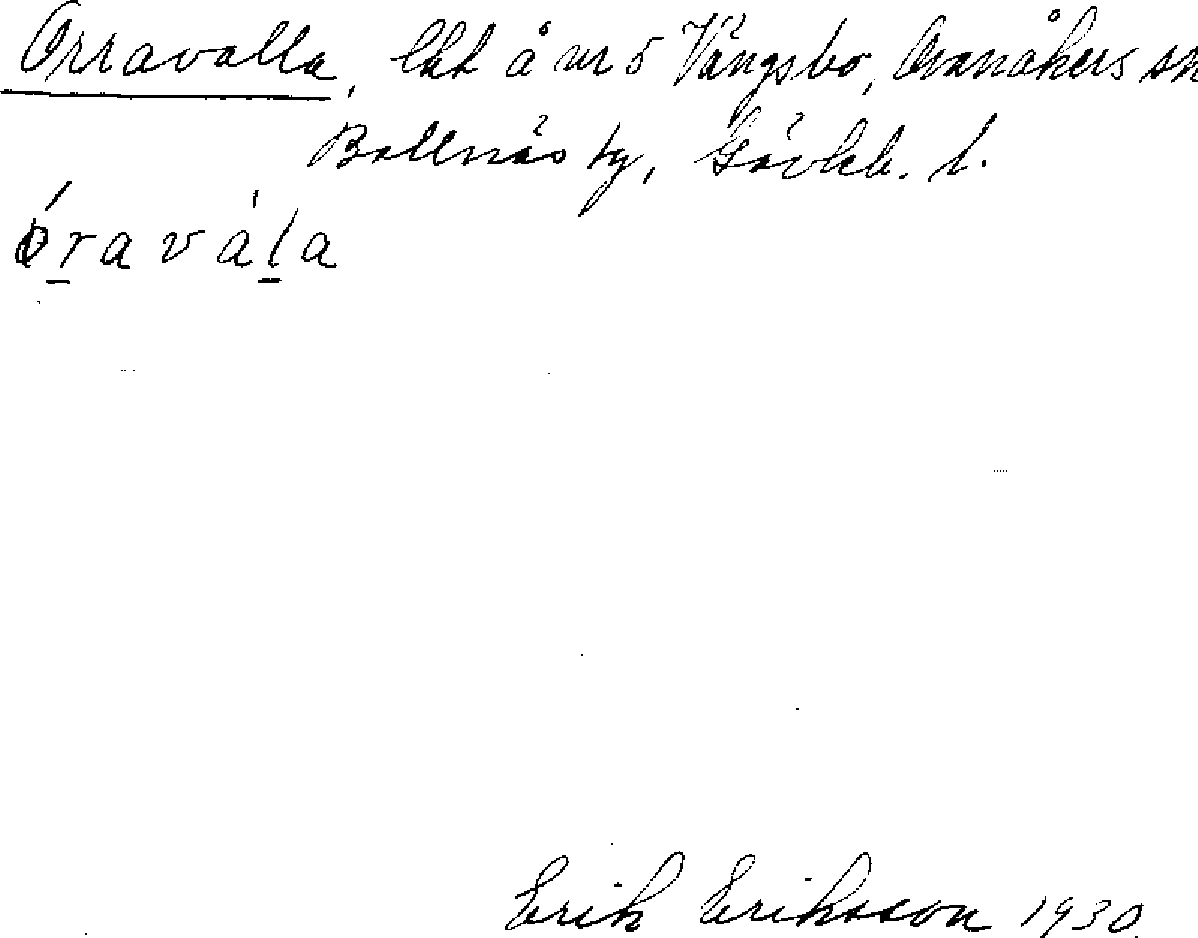 Orravalla, lht å nr 5 Vängsbo, Ovanåkers sn
Bollnäs tg, Gävleb. l.
óravàla
Erik Eriksson 1930.